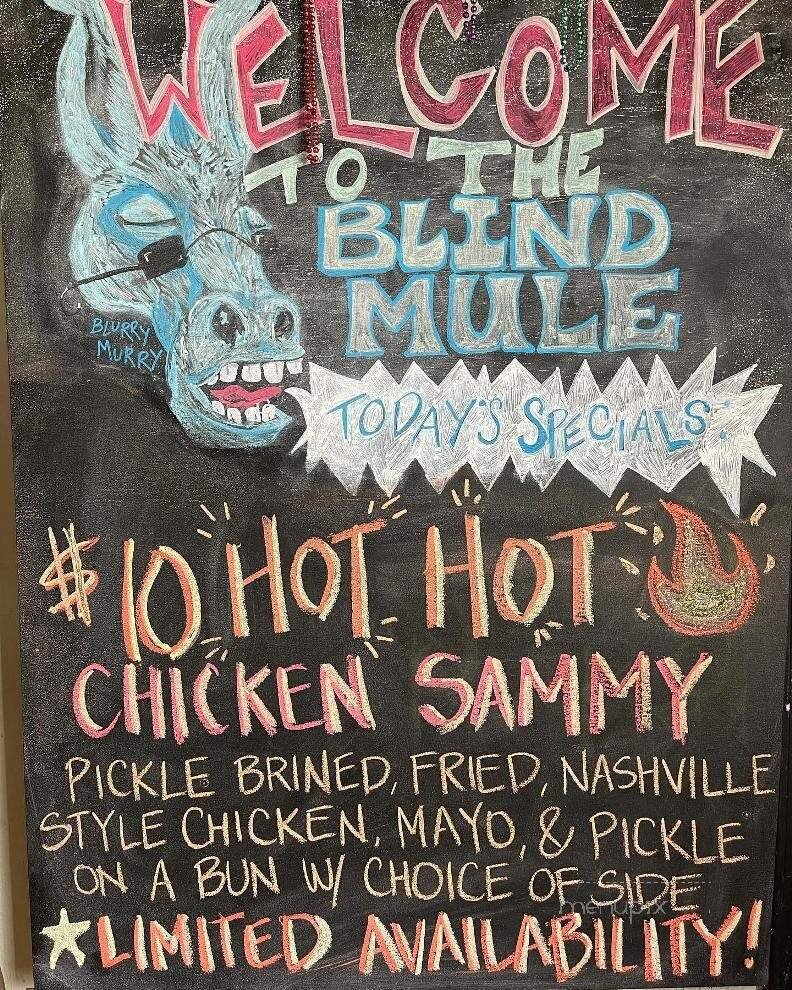 WELCOME
TO THE
BLIND
MULE
BLURRY
MURRY
TODAY'S SPECIALS:
$10 HOT HOT
CHICKEN SAMMY
PICKLE BRINED, FRIED, NASHVILLE
STYLE CHICKEN, MAYO, & PICKLE
ON A BUN W/ CHOICE OF SIDE
menupix
LIMITED AVAILABILITY!